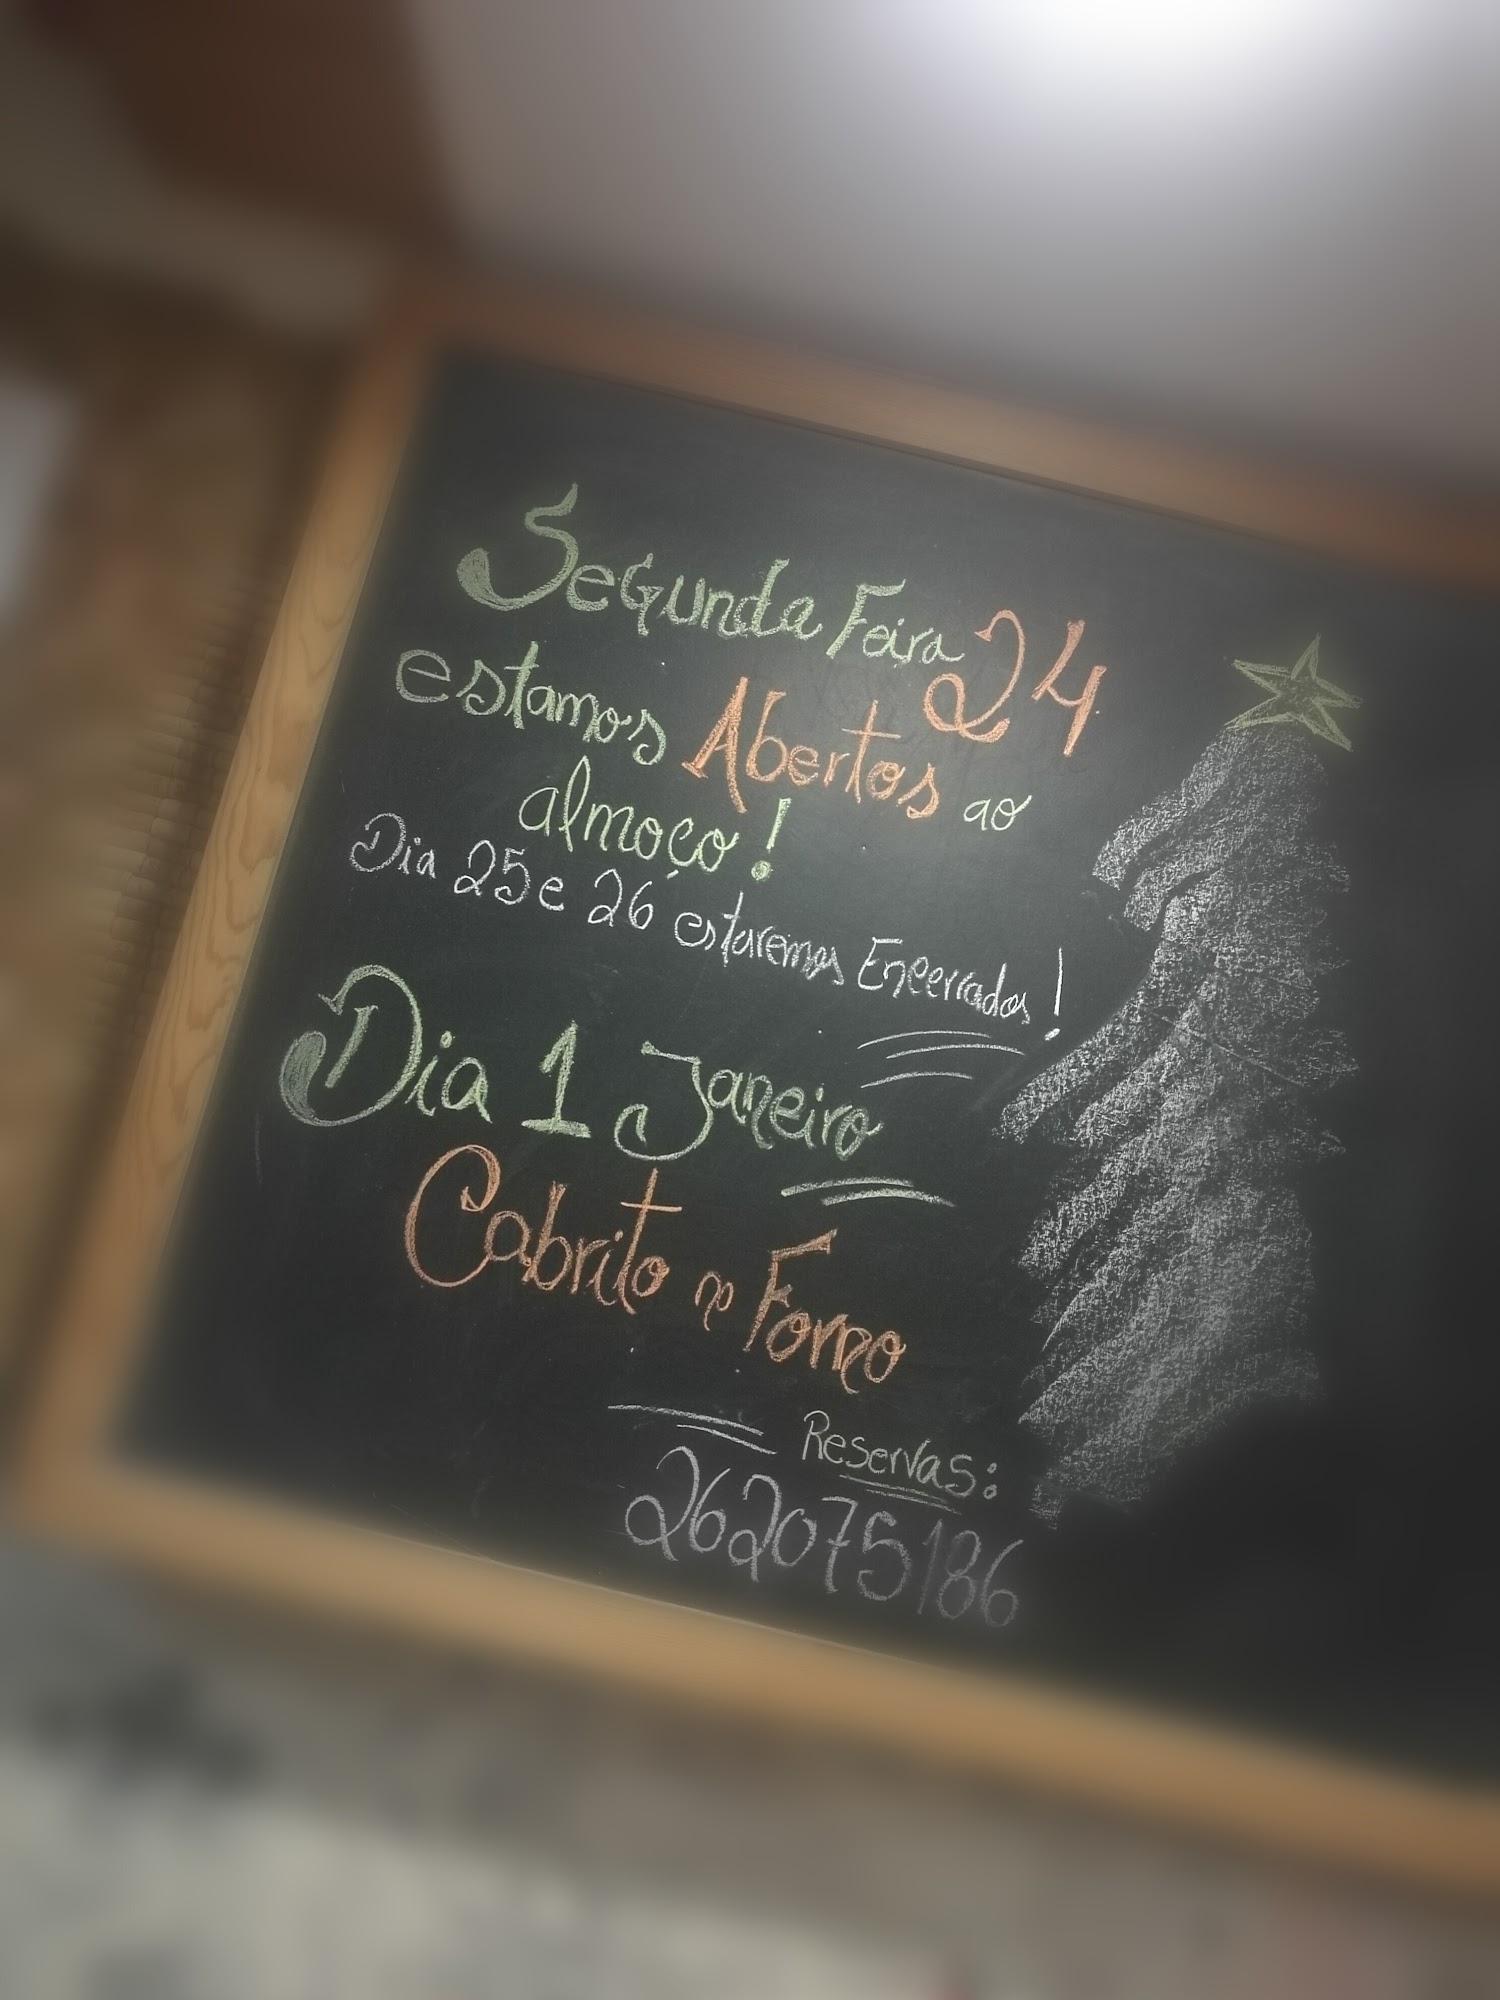 Segunda Feira 24
estamos Abertos ao
almoço!
Dia 25 e 26 estaremos Encerrados!
Dia 1 Janeiro
Cabrito no Forno
Reservas:
262075186